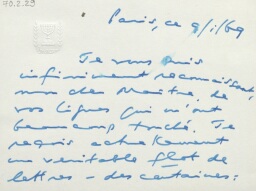 70.2.29
Paris, ce 9/1/69
Je vous suis
infiniment reconnaissant,
mon cher Maître, de
vos lignes qui m'ont
beaucoup touché. Je
reçois actuellement
un véritable flot de
lettres - des centaines: